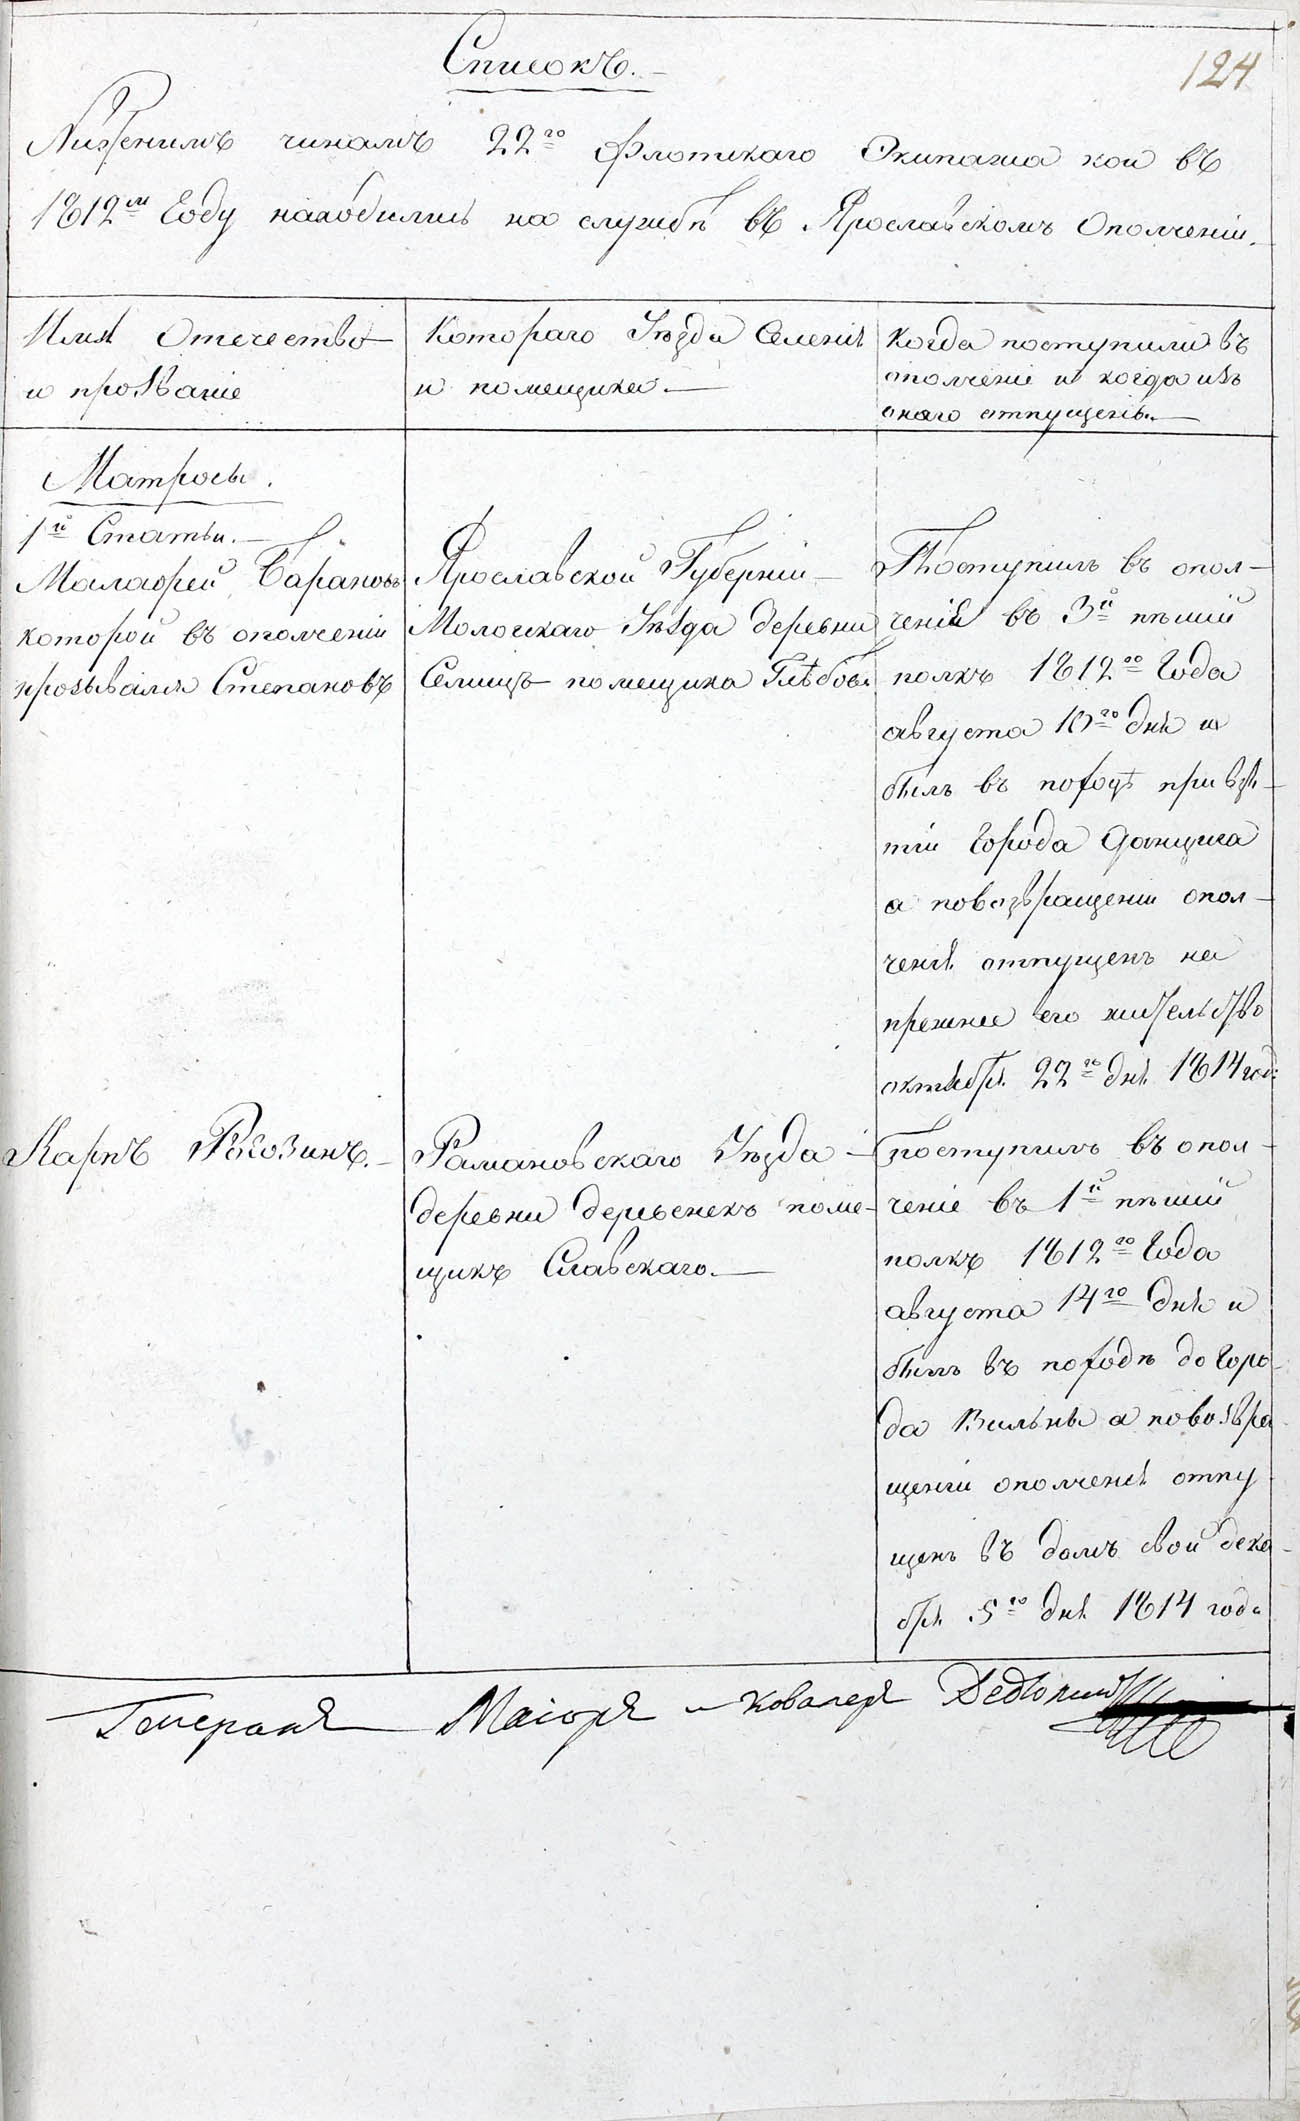 124
Списокъ.
Нижнимъ чинамъ 22го флотскаго Экипажа кои въ
1812м Году находились на службѣ въ Ярославскомъ Ополченіи.
Имя Отечество
и прозваніе
Котораго Уѣзда Селенія
и помещика
Когда поступили въ
ополченіе и когда изъ
онаго отпущены
Матросы.
1й Статьи.
Малафей Барановъ
которой въ ополченіи
прозывался Степановъ
Ярославской Губерніи
Мологскаго Уѣзда деревни
Селищъ помещика Глѣбова
Поступилъ въ опол-
ченіе въ 3й пѣшій
полкъ 1812го Года
августа 10го дня и
былъ въ походѣ при взя-
тіи Города Данцига
а повозвращеніи опол-
ченія отпущенъ на
прежнее его жительство
октября 22го дня 1814 год:
Карпъ Рогозинъ.
Рамановскаго Уѣзда
деревни деревенекъ поме-
щикъ Славскаго.
поступилъ въ опол-
ченіе въ 1й пѣшій
полкъ 1812го Года
августа 14го дня и
былъ въ походѣ до Горо-
да Вильны а повозвра
щеніи ополченія отпу
щенъ въ домъ свой дека-
бря 5го дня 1814 года
Генералъ Маіоръ и кавалеръ